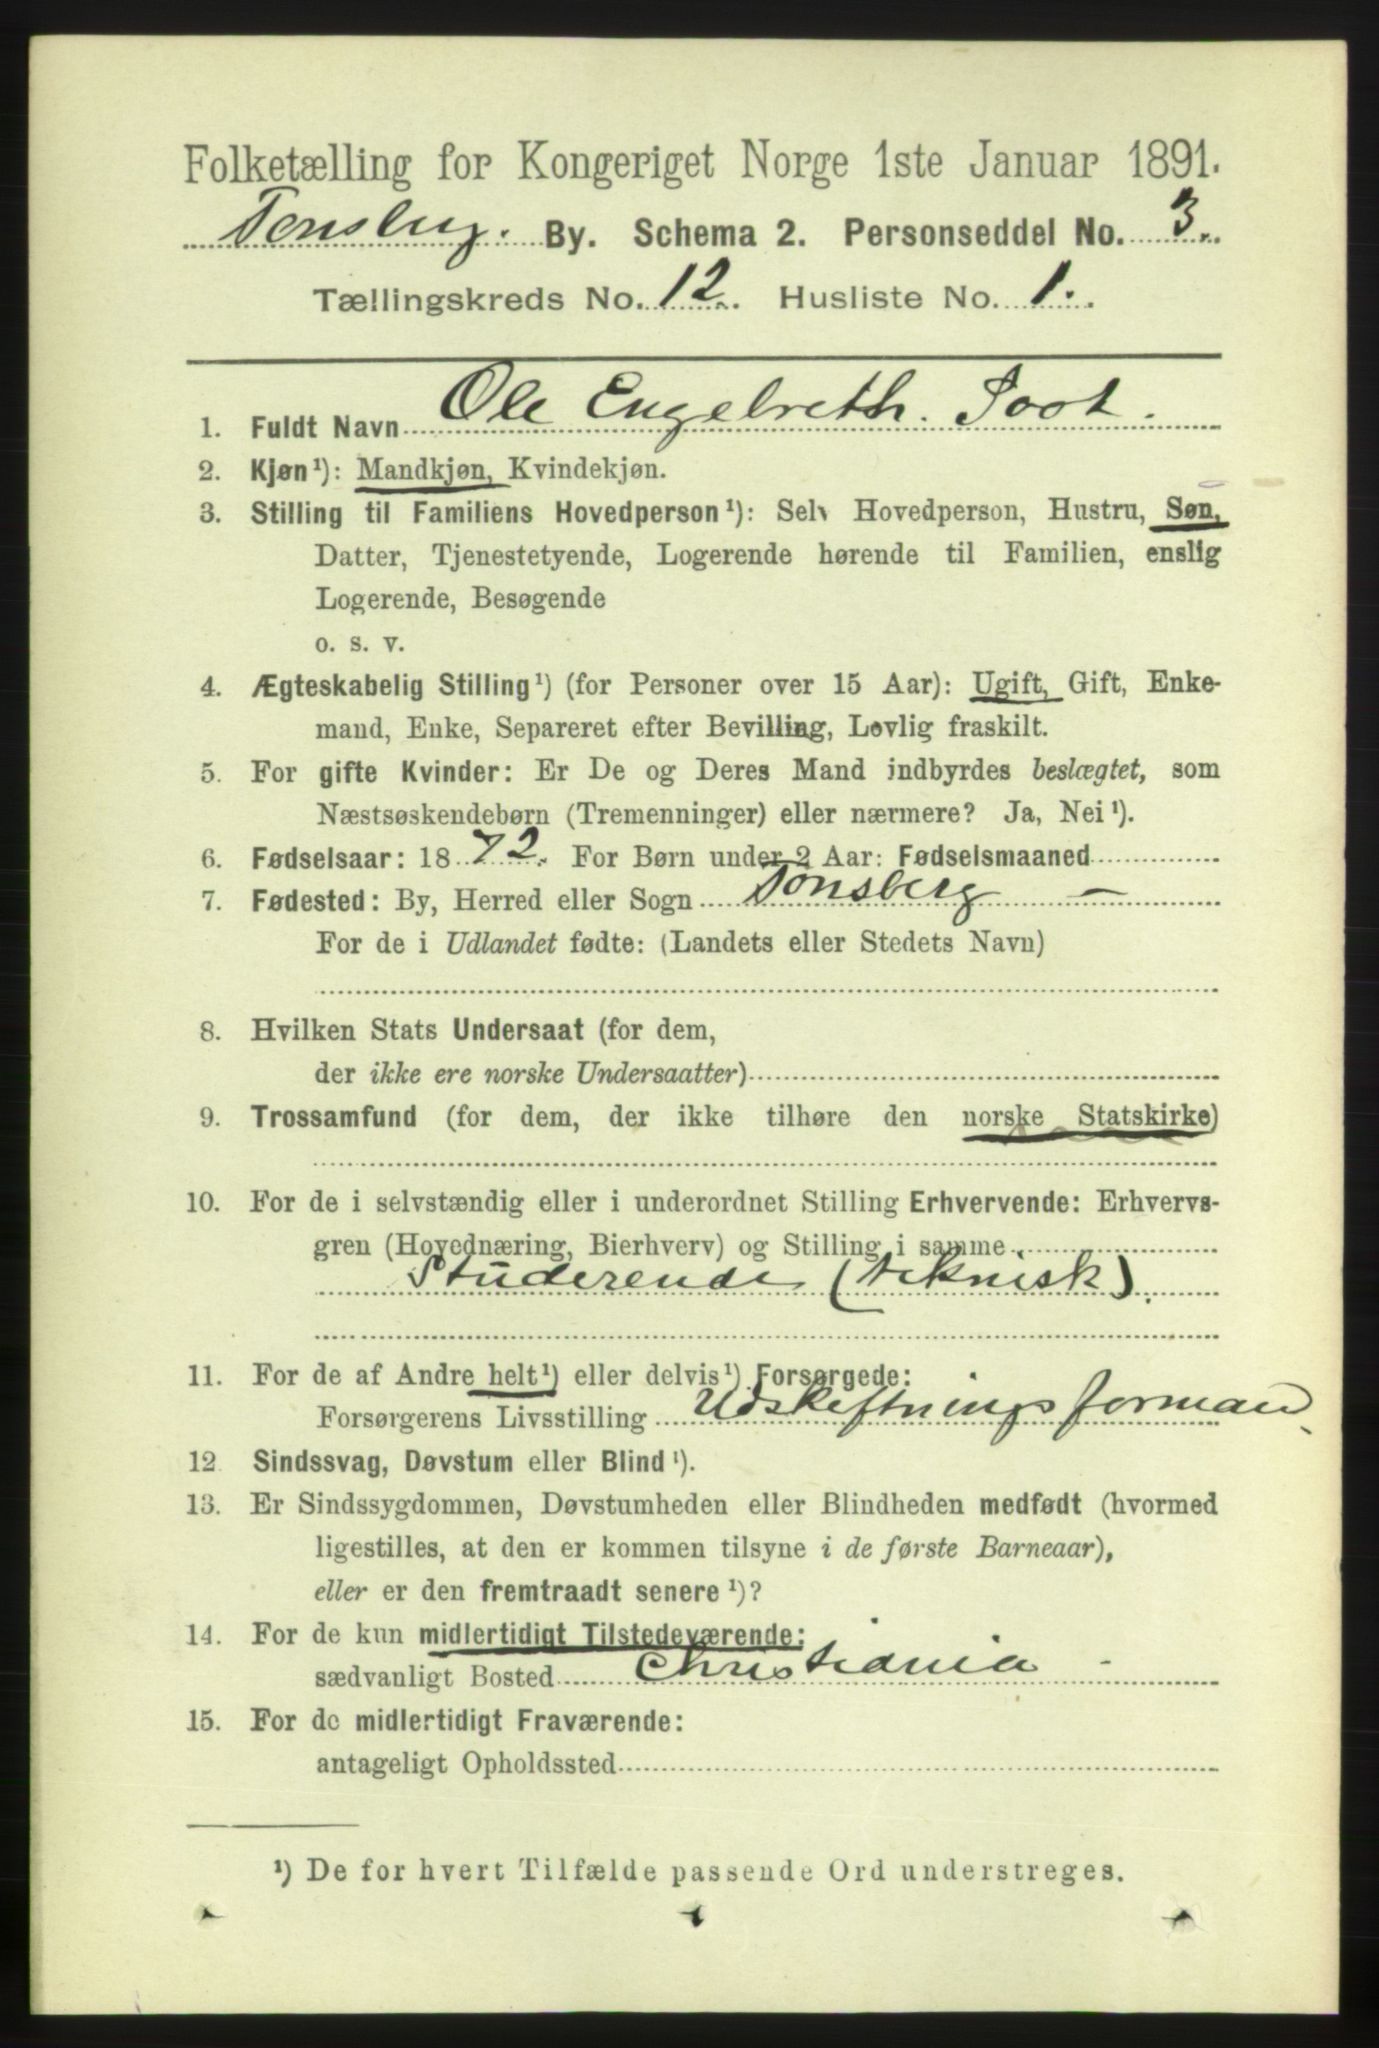 Folketælling for Kongeriget Norge 1ste Januar 1891.
Tønsberg. By. Schema 2. Personseddel No. 3.
Tællingskreds No. 12. Husliste No. 1.
1. Fuldt Navn Ole Engelreth. Soot.
2. Kjøn¹): Mandkjøn, Kvindekjøn.
3. Stilling til Familiens Hovedperson¹): Selv Hovedperson, Hustru, Søn,
Datter, Tjenestetyende, Logerende hørende til Familien, enslig
Logerende, Besøgende
o. s. v.
4. Ægteskabelig Stilling¹) (for Personer over 15 Aar): Ugift, Gift, Enke-
mand, Enke, Separeret efter Bevilling, Lovlig fraskilt.
5. For gifte Kvinder: Er De og Deres Mand indbyrdes beslægtet, som
Næstsøskendebørn (Tremenninger) eller nærmere? Ja, Nei¹).
6. Fødselsaar: 1872. For Børn under 2 Aar: Fødselsmaaned
7. Fødested: By, Herred eller Sogn Tønsberg —
For de i Udlandet fødte: (Landets eller Stedets Navn)
8. Hvilken Stats Undersaat (for dem,
der ikke ere norske Undersaatter)
9. Trossamfund (for dem, der ikke tilhøre den norske Statskirke)
10. For de i selvstændig eller i underordnet Stilling Erhvervende: Erhvervs-
gren (Hovednæring, Bierhverv) og Stilling i samme
Studerende (teknisk).
11. For de af Andre helt¹) eller delvis¹) Forsørgede:
Forsørgerens Livsstilling Udskiftningsforman
12. Sindssvag, Døvstum eller Blind¹).
13. Er Sindssygdommen, Døvstumheden eller Blindheden medfødt (hvormed
ligestilles, at den er kommen tilsyne i de første Barneaar),
eller er den fremtraadt senere¹)?
14. For de kun midlertidigt Tilstedeværende:
sædvanligt Bosted Christiania -
15. For de midlertidigt Fraværende:
antageligt Opholdssted
¹) De for hvert Tilfælde passende Ord understreges.